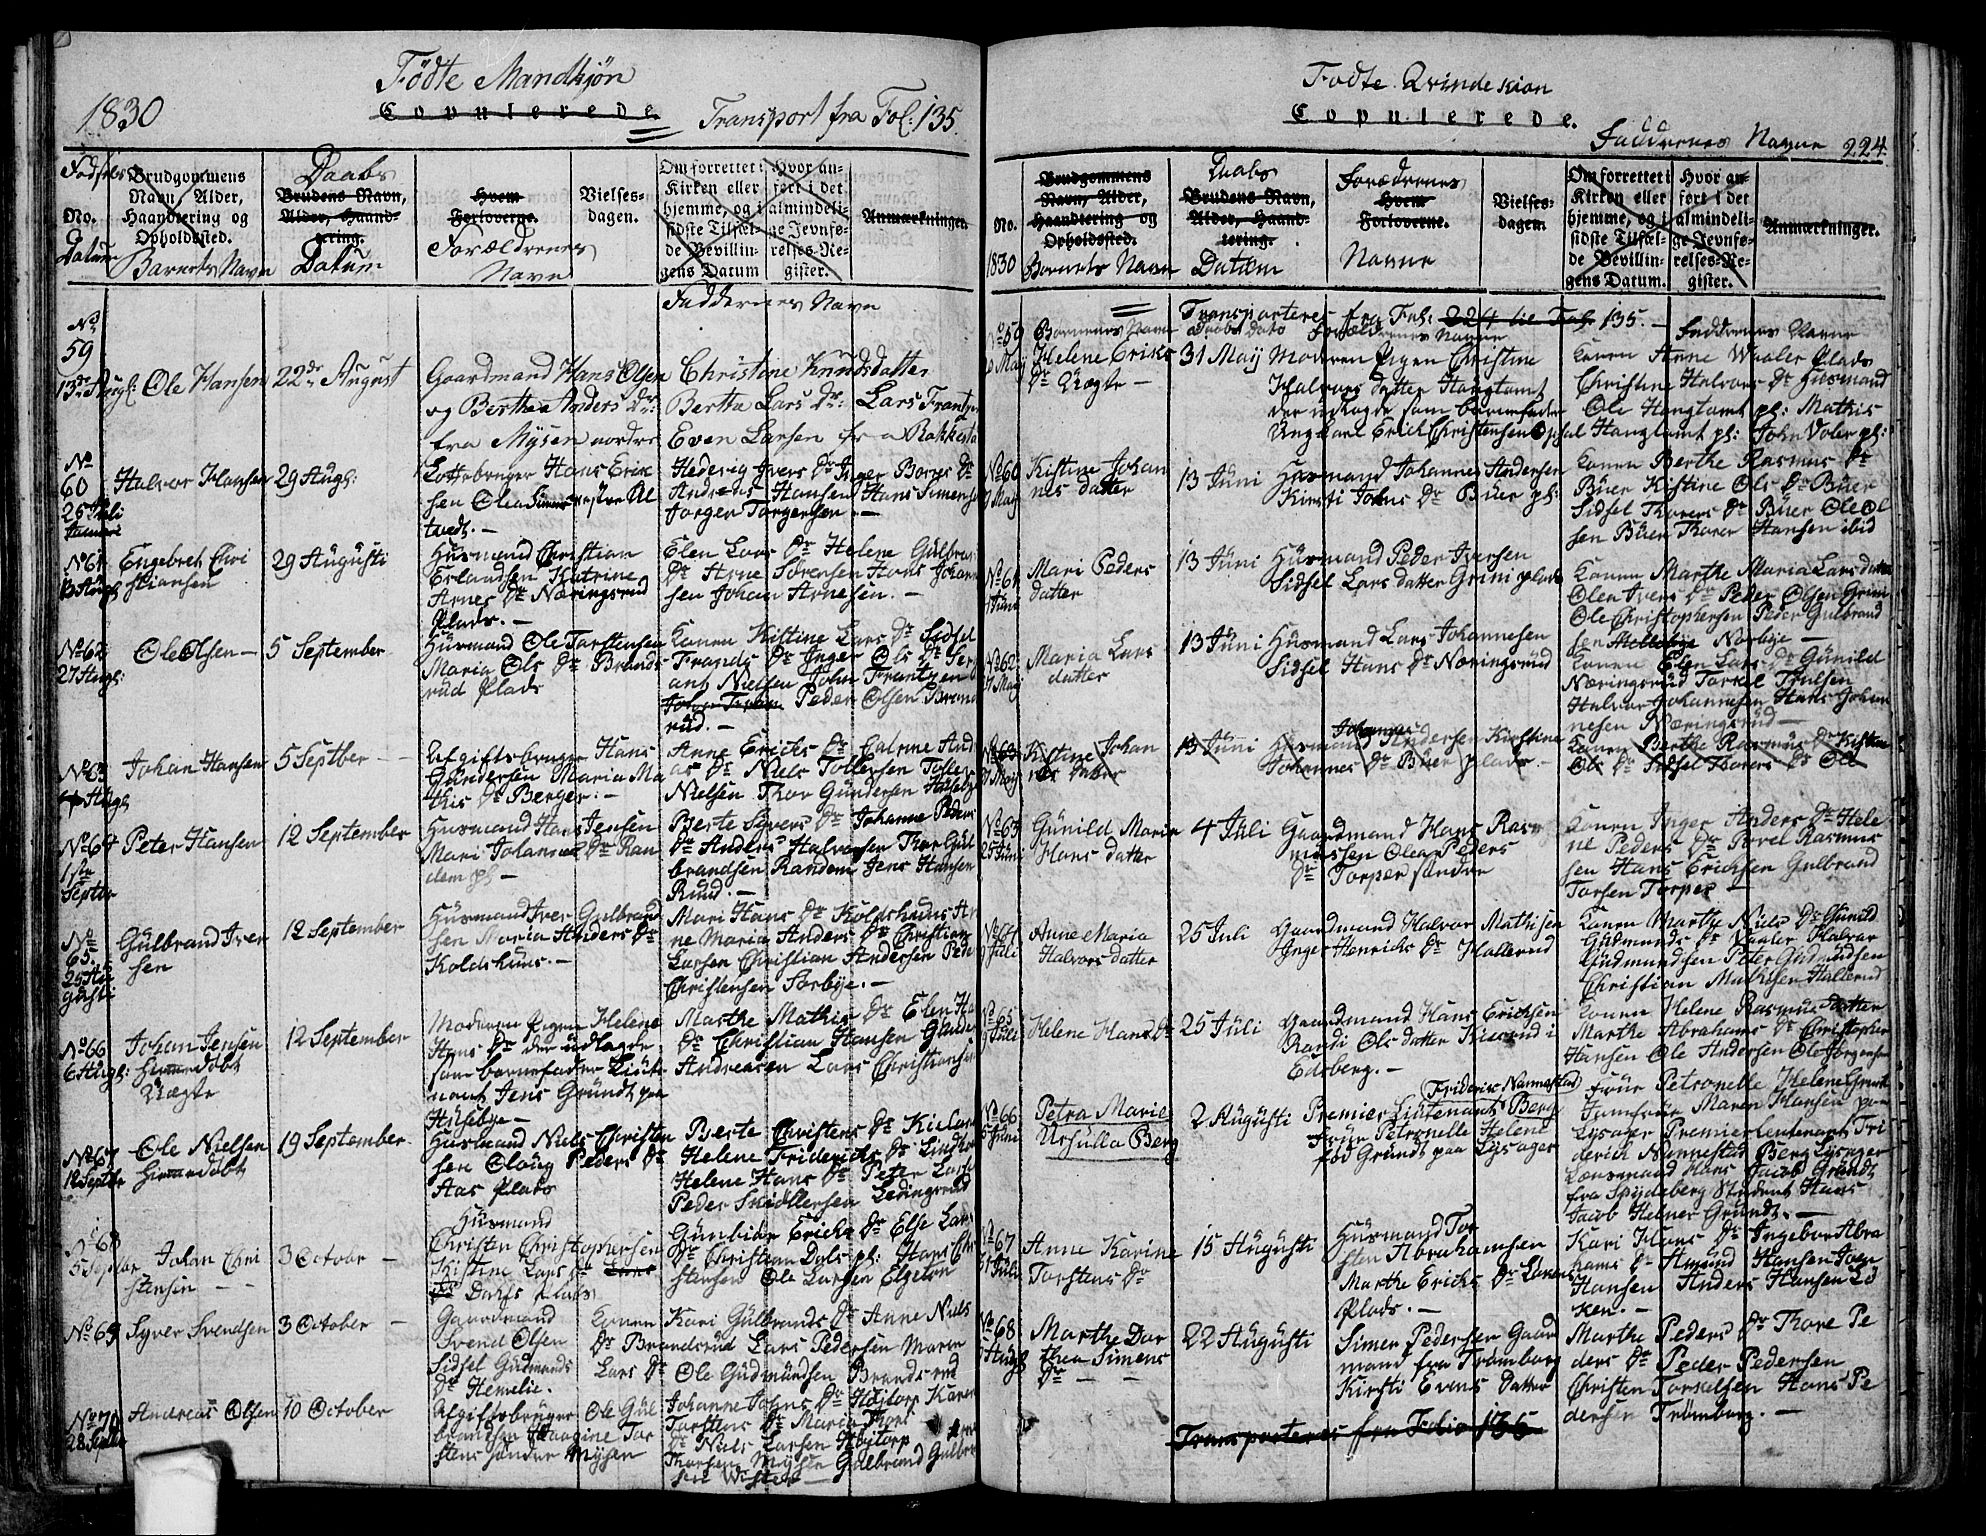 1830
Fødte Mandkjøn
Copulerede.
Transport fra Fol: 135.
Fødsels
No.
Datum
Brudgommens
Navn, Alder,
Haandtering og
Opholdssted.
Barnets Navn
Daabs
Brudens Navn,
Alder, Haand-
tering.
Datum
Hvem
Forloverne.
Forældrenes
Navn
Vielses-
dagen.
Om forrettet i
Kirken eller
hjemme, og i
sidste Tilfæl-
de Bevillin-
gens Datum
Hvor an-
ført i det
almindeli-
ge Jevnfø-
relses-Re-
gister.
Anmærkninger.
Faddernes Navn
No
59
Ole Hansen
22de August
Gaardmand Hans Olsen
og Berthe Anders Dr:
fra Mysen nordre
Christine Knudsdatter
Bertha Lars Dr: Lars Frantzen
Even Larsen fra Rakkestad
No
60
Halvor Hansen
29 Augs:
Hans Erik
sen Olea
tvedt.
Hedevig Ivers Dr Inger Bores Dr
Andreas Hansen Hans Simensen
Jørgen Torgersen
No 61
Engebret Chri
stiansen
29 Augusti
Husmand Christian
Erlandsen Katrine
Arnes Dr Næringsrud
Plads.
Elen Lars Dr Helene Gulbrands
Dr Arne Sørensen Hans Johan
sen Johan Arnesen.
No 62
27 Augs:
Ole Olsen
5 September
Husmand Ole Torstensen
Maria Ols Dr Brands
rud Plads
Konen Kistine Lars Dr Sidsel
Frands Dr Inger Ols Dr Serj
ant Nielsen John Frantzen
Peder Olsen Brand
rud.
No 63
Johan Hansen
5 Septber
Afgiftsbruger Hans
Gundersen Maria Ma
this Dr Berger.
Anne Erichs Dr Catrine And
as Dr Niels Tollefsen Tollef
Nielsen Thor Gundersen
No 64
1ste
Septbr
Peter Hansen
12 September
Husmand Hans Jensen
Mari Johannes Dr Ran
dem pl
Berte Syvers Dr Johanne Peders
Dr Anders Halvorsen Thor Gul
brandsen Randem Jens Hansen
Ruud.
No
65
25 Au
gusti
Gulbrand Iver
sen
12 September
Husmand Iver Gulbrand
sen Maria Anders Dr
Koldshuus.
Mari Hans Dr Koldshuus An
ne Maria Anders Dr Christian
Larsen Christian Andersen Peder
Christensen Sorbye.
No 66
6 Augs:
Johan Jensen
hjemmedøbt
Uægte
12 September
Moderen Pigen Helene
Hans Dr der udlagde
som barnefader Lieute
nant Jens Grundt paa
Husebye
Marthe Mathis Dr Elen Ha
Dr Christian Hansen Gunder
Andreasen Lars Christiansen
No 67
12 Septbr
Ole Nielsen
hjemmedøbt
19 September
Husmand Niels Christen
sen Oloug Peders Dr
Aas Plads
Berte Christens Dr
Helene Friderichs Dr
Helene Hans Dr Peter Larsen
Peder
No 68
5 Septbr
Johan Chri
stensen
3 October
Husmand
Christen Christophersen
Kistine Lars Dr
Plads
Gunbiør Erichs Dr Else Lars
Dr Christian Dals pl: Hans Chri
stensen Ole Larsen Elgeton
No 69
Syver Svendsen
3 October
Gaardmand
Svend Olsen
Sidsel Gudmunds
Dr Hemelie.
Konen Kari Gulbrands Dr Anne Niels
Dr Brandsrud Lars Pedersen Maren
Lars Dr Ole Gudmundsen Brandsrud
No 70
28 Septbr
Andreas Olsen
10 October
Afgiftsbruger Ole Gul
brandsen Haagine Tor
stens søndre Mysen
Johanne Johns Dr Høitorp Karen
Torstens Dr Maria Thors
Dr Niels Larsen Høytorp
Thorsen Mysen Gulbrand Gulbrand
sen
Fødte Qvindekiøn
Copulerede.
Faddernes Navne
224
No.
1830
Brudgommens
Navn, Alder,
Haandtering og
Opholdssted.
Barnets Navn
Daabs
Brudens Navn,
Alder, Haand-
tering.
Datum
Forældrenes
Hvem
Forloverne.
Navne
Vielses-
dagen.
Om forrettet i
Kirken eller
hjemme, og i
sidste Tilfæl-
de Bevillin-
gens Datum.
Hvor an-
ført i det
almindeli-
ge Jevnfø-
relses-Re-
gister.
Anmærkninger.
Transporteres fra Fol: 224 til Fol. 135.
No 59
Børnenes Navn
Daabs Dato
Forældrenes Navne
Faddernes Navne
Helene Eriks
Dr Uægte
31 Maij
Moderen Pigen Christine
Halvors datter Hangtamt
der udlagde som barnefader
Ungkarl Erich Christensen
Konen Anne Waaler Plads
Christine Halvors Dr Husmand
Ole Hangtamt pl: Mathis
Hangtamt pl: John Voler pl:
No 60
Kistine Johan
nes datter
13 Juni
Husmand Johannes Andersen
Kirsti Johns Dr Büer pl:
Konen Berthe Rasmus Dr
Büer Kistine Ols Dr Büer
Sidsel Thorers Dr Büer Ole Ol
sen Büer Thorer Hansen ibid
No 61
Mari Peders
datter
13 Juni
Husmand Peder Iversen
Sidsel Lars datter Grini plads
Konen Marthe Maria Lars datter
Olea Ivers Dr Peder Olsen Grini
Ole Christophersen Peder Gulbrand
sen Norbye
No 62
Maria Lars
datter
13 Juni
Husmand Lars Johannesen
Sidsel Hans Dr Næringsrud
Konen Elen Lars Dr Gunild
Næringsrud Torkel Poulsen
Halvor Johannesen Hans Johan
nesen Næringsrud
No 63
Kistine Johan
nes datter
13 Juni
Husmand Johannes Andersen Kirstine
Johannes Dr Büer plads
Konen Berthe Rasmus Dr Kistine
Ols Dr Sidsel Thorers Dr Ole
No 63
25 Juni
Gunild Marie
Hans datter
4 Juli
Gaardmand Hans Ras
mussen Olea Peders
Dr Torper søndre
Konen Inger Anders Dr Hele
ne Peders Dr Povel Rasmus
sen Hans Erichsen Gulbrand
Torsen Torper
No 64
Juli
Anne Maria
Halvors datter
25 Juli
Gaardmand Halvor Mathisen
Inger Henrichs Dr Hallerud
Konen Marthe Niels Dr Gunild
Gudmunds Dr Vaaler Halvor
Gudmundsen Peter Gudmundsen
Christian Mathisen Hallerud
No 65
Juli
Helene Hans Dr
25 Juli
Gaardmand Hans Erichsen
Randi Ols datter Kiserud i
Edsberg.
Konen Helene Rasmus Datter
Marthe Abrahams Dr Christopher
Hansen Ole Andersen Ole Jørgensen
No 66
Juni
Petra Marie
Ursulla Berg
2 Augusti
Friderik Nannestad
Premier Lieutenant Berg
Frue Petronelle Helene
fød Grundt paa Lysager
Frue Petronelle Helene Grundt
Jomfrue Maren Hansen paa
Lysager Premier Lieutenant Fri
derich Nannestad Berg Lysager
Lensmand Hans Jacob Grundt
fra Spydeberg Student Hans
Jacob Helner Grundt.
No 67
Juli
Anne Karine
Torstens Dr
15 Augusti
Husmand Tor
sten Abrahamsen
Marthe Erichs Dr Løkens
Plads.
Kari Hans Dr Ingebor Abra
hams Dr Amund Hansen
Hansen Anders Hansen Lø
ken.
No 68
Augs
Marthe Dor
thea Simens
Dr
22 Augusti
Simen Pedersen Gaard
mand fra Trømborg
Kirsti Evens Datter
Marthe Peders Dr Thore Pe
ders Dr Peder Pedersen
Christen Torkelsen Hans Pe
dersen Trømborg.
Transporteres fra Folio 136